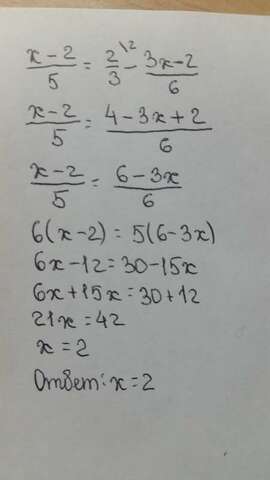 x-2/5 = 2/3 \2 - 3x-2/6
x-2/5 = 4-3x+2/6
x-2/5 = 6-3x/6
6(x-2)=5(6-3x)
6x-12=30-15x
6x+15x=30+12
21x=42
x=2
Ответ: x=2